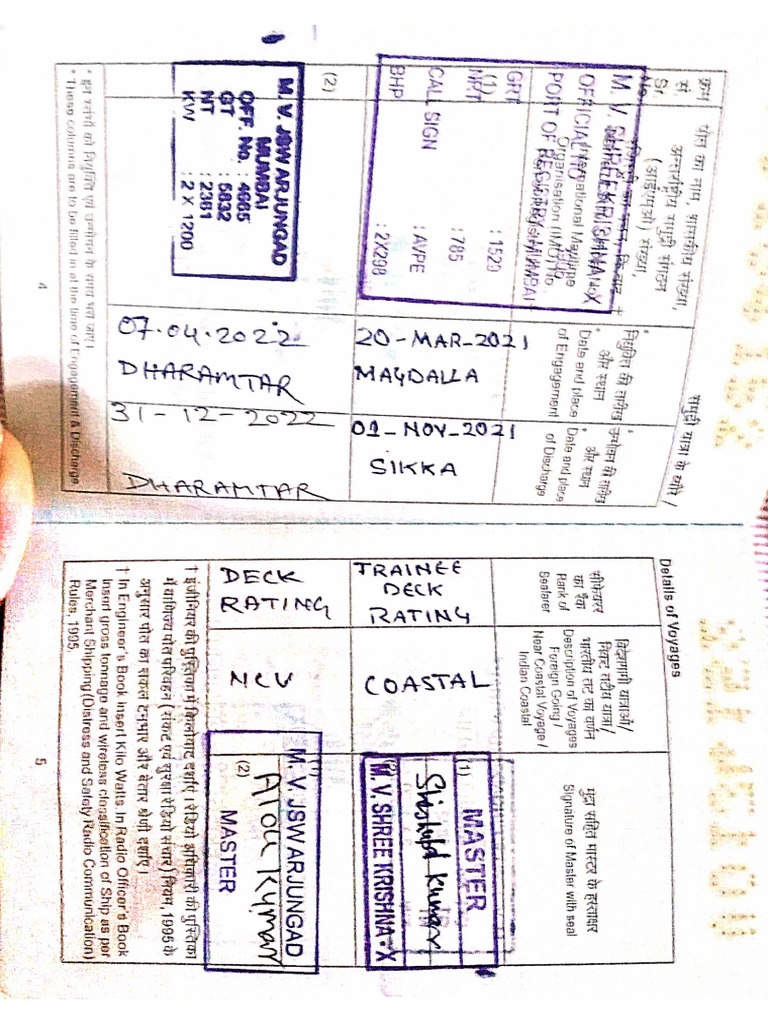 समुद्री यात्रा के ब्यौरे /
क्रम
सं
Sr.
पोत का नाम, शासकीय संख्या,
अन्तर्राष्ट्रीय समुद्री संगठन
(आईएमओ) संख्या,
International Maritime
Organisation (IMO) No.
नियुक्ति की तारीख
और स्थान
Date and place
of Engagement
उन्मोचन की तारीख
और स्थान
Date and place
of Discharge
M. V. SHREE KRISHNA-X
OFFICIAL NO
PORT OF REGISTRY : MUMBAI
GRT : 1529
(1)
NRT : 765
CALL SIGN : AVPE
BHP : 2X298
20-MAR-2021
MAGDALLA
01-NOV-2021
SIKKA
(2)
M. V. JSW ARJUNGAD
MUMBAI
OFF. No. : 4665
GT : 5832
NT : 2361
KW : 2 X 1200
07.04.2022
DHARAMTAR
31-12-2022
DHARAMTAR
* इन स्तंभों को नियुक्ति एवं उन्मोचन के समय भरा जाए।
* These columns are to be filled in at the time of Engagement & Discharge
4
Details of Voyages
सीफेयरर
का रैंक
Rank of
Seafarer
विदेशगामी यात्राओं/
निकट तटीय यात्रा/
भारतीय तट का वर्णन
Description of Voyages
Foreign Going /
Near Coastal Voyage /
Indian Coastal
मुद्रा सहित मास्टर के हस्ताक्षर
Signature of Master with seal
TRAINEE
DECK
RATING
COASTAL
(1)
MASTER
M. V. SHREE KRISHNA-X
DECK
RATING
NCV
M. V. JSW ARJUNGAD
(2)
Alok Kumar
MASTER
† इंजीनियर की पुस्तिका में किलोवाट दर्शाएं। रेडियो अधिकारी की पुस्तिका
में वाणिज्य पोत परिवहन (संकट एवं सुरक्षा रेडियो संचार) नियम, 1995 के
अनुसार पोत का सकल टनभार और बेतार श्रेणी दर्शाएं।
† In Engineer's Book insert Kilo Watts. In Radio Officer's Book
insert gross tonnage and wireless classification of Ship as per
Merchant Shipping (Distress and Safety Radio Communication)
Rules, 1995.
5